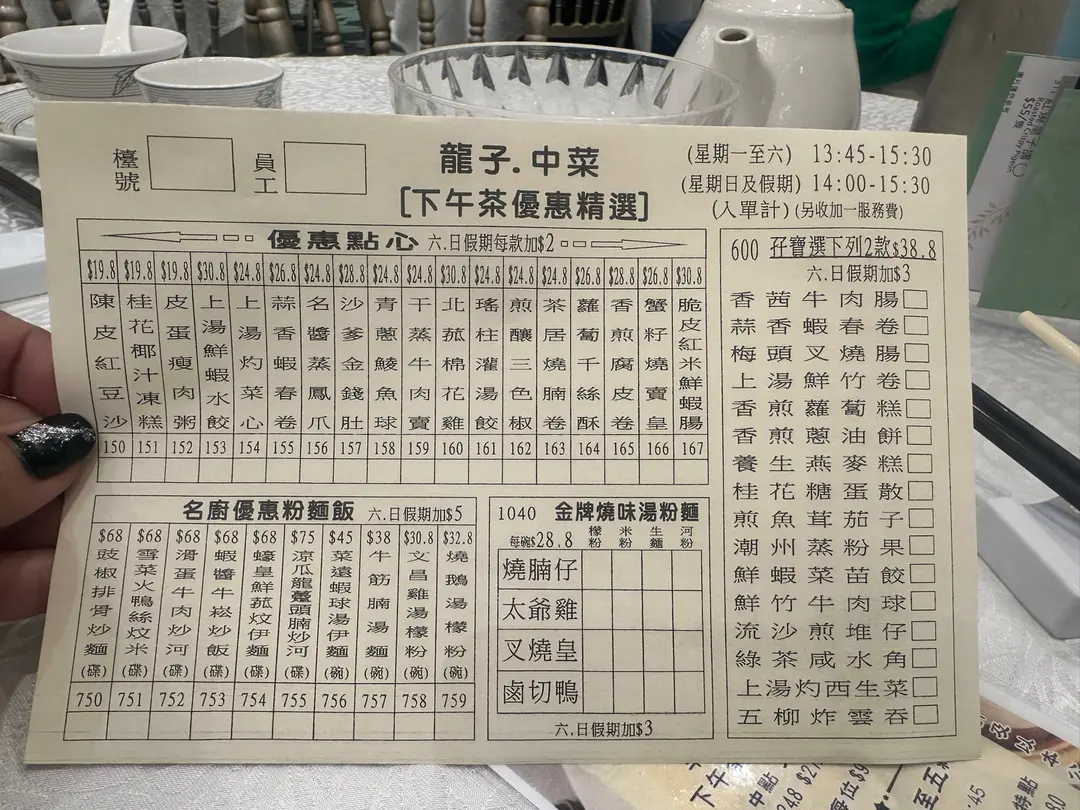 檯號
員工
龍子.中菜
[下午茶優惠精選]
(星期一至六) 13:45-15:30
(星期日及假期) 14:00-15:30
(入單計) (另收加一服務費)
優惠點心 六.日假期每款加$2
$19.8 陳皮紅豆沙 150
$19.8 桂花椰汁凍糕 151
$19.8 皮蛋瘦肉粥 152
$30.8 上湯鮮蝦水餃 153
$24.8 上湯灼菜心 154
$26.8 蒜香蝦春卷 155
$24.8 名醬蒸鳳爪 156
$28.8 沙爹金錢肚 157
$24.8 青蔥鯪魚球 158
$24.8 干蒸牛肉賣 159
$30.8 北菰棉花雞 160
$24.8 瑤柱灌湯餃 161
$24.8 煎釀三色椒 162
$24.8 茶居燒腩卷 163
$26.8 蘿蔔千絲酥 164
$28.8 香煎腐皮卷 165
$26.8 蟹籽燒賣皇 166
$30.8 脆皮紅米鮮蝦腸 167
名廚優惠粉麵飯 六.日假期加$5
$68 豉椒排骨炒麵 (碟) 750
$68 雪菜火鴨絲炆米 (碟) 751
$68 滑蛋牛肉炒河 (碟) 752
$68 蝦醬牛崧炒飯 (碟) 753
$68 蠔皇鮮菰炆伊麵 (碟) 754
$75 涼瓜龍躉頭腩炒河 (碟) 755
$45 菜遠蝦球湯伊麵 (碗) 756
$38 牛筋腩湯麵 (碗) 757
$30.8 文昌雞湯檬粉 (碗) 758
$32.8 燒鵝湯檬粉 (碗) 759
1040 金牌燒味湯粉麵
每碗$28.8 檬粉 米粉 生麵 河粉
燒腩仔
太爺雞
叉燒皇
鹵切鴨
六.日假期加$3
600 孖寶選下列2款$38.8
六.日假期加$3
香茜牛肉腸
蒜香蝦春卷
梅頭叉燒腸
上湯鮮竹卷
香煎蘿蔔糕
香煎蔥油餅
養生燕麥糕
桂花糖蛋散
煎魚茸茄子
潮州蒸粉果
鮮蝦菜苗餃
鮮竹牛肉球
流沙煎堆仔
綠茶咸水角
上湯灼西生菜
五柳炸雲吞
Roasted Crispy Pigeon
$55/隻